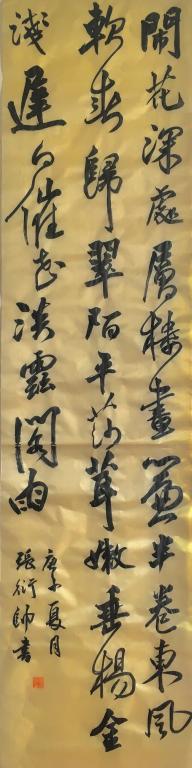 閙花深處層樓畫簾半卷東風
軟春歸翠陌平莎茸嫩垂楊金
淺遲日催花淡雲閣雨
庚子夏月
張衍帥書